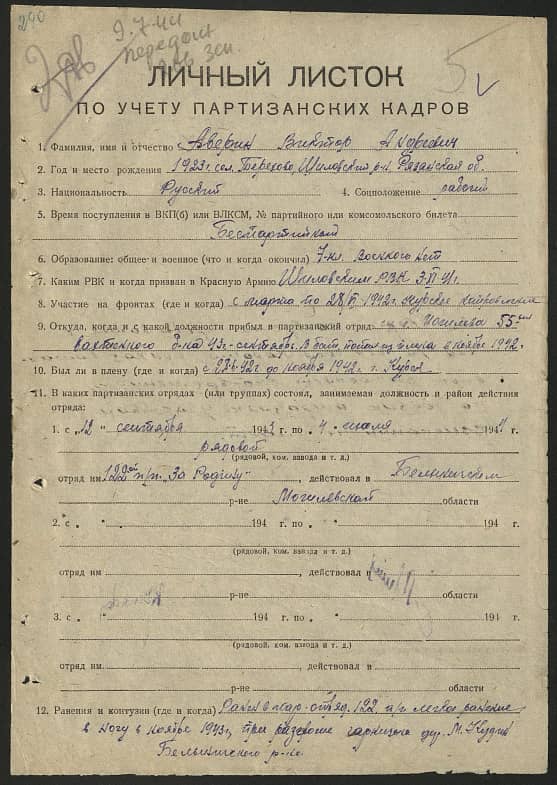 240
9.7.44
передан
ЛИЧНЫЙ ЛИСТОК
5
ПО УЧЕТУ ПАРТИЗАНСКИХ КАДРОВ
1. Фамилия, имя и отчество Аверин Виктор
2. Год и место рождения 1923 г. сел. Терехово, Шиловский р-н Рязанская об.
3. Национальность Русский 4. Соцположение рабочий
5. Время поступления в ВКП(б) или ВЛКСМ, № партийного или комсомольского билета
Беспартийный
6. Образование: общее и военное (что и когда окончил) 7-кл. Военного нет
7. Каким РВК и когда призван в Красную Армию Шиловским РВК
8. Участие на фронтах (где и когда) с марта по 28/VI 1942 г. Курское направление
9. Откуда, когда и с какой должности прибыл в партизанский отряд г. Могилева 55
б-на 43 г. сентябрь. В бат. попал из плена в ноябре 1942 г.
10. Был ли в плену (где и когда) до ноября 1942 г. Курск
11. В каких партизанских отрядах (или группах) состоял, занимаемая должность и район действия
отряда:
1. с „12" сентября 1943 г. по „4" июля 1944 г.
рядовой
(рядовой, ком. взвода и т. д.)
отряд им 122ой п/п. За Родину", действовал в Белыничском
р-не Могилевской области
2. с „ " 194 г. по „ " 194 г.
(рядовой, ком. взвода и т. д.)
отряд им , действовал в
р-не области
3. с „ " 194 г. по „ " 194 г.
(рядовой, ком. взвода и т. д.)
отряд им , действовал в
р-не области
12. Ранения и контузии (где и когда) Ранен в 122 п/п легкое ранение
в ногу в ноябре 1943 г, при разгроме гарнизона дер. М. Кудин
Белыничского р-на.